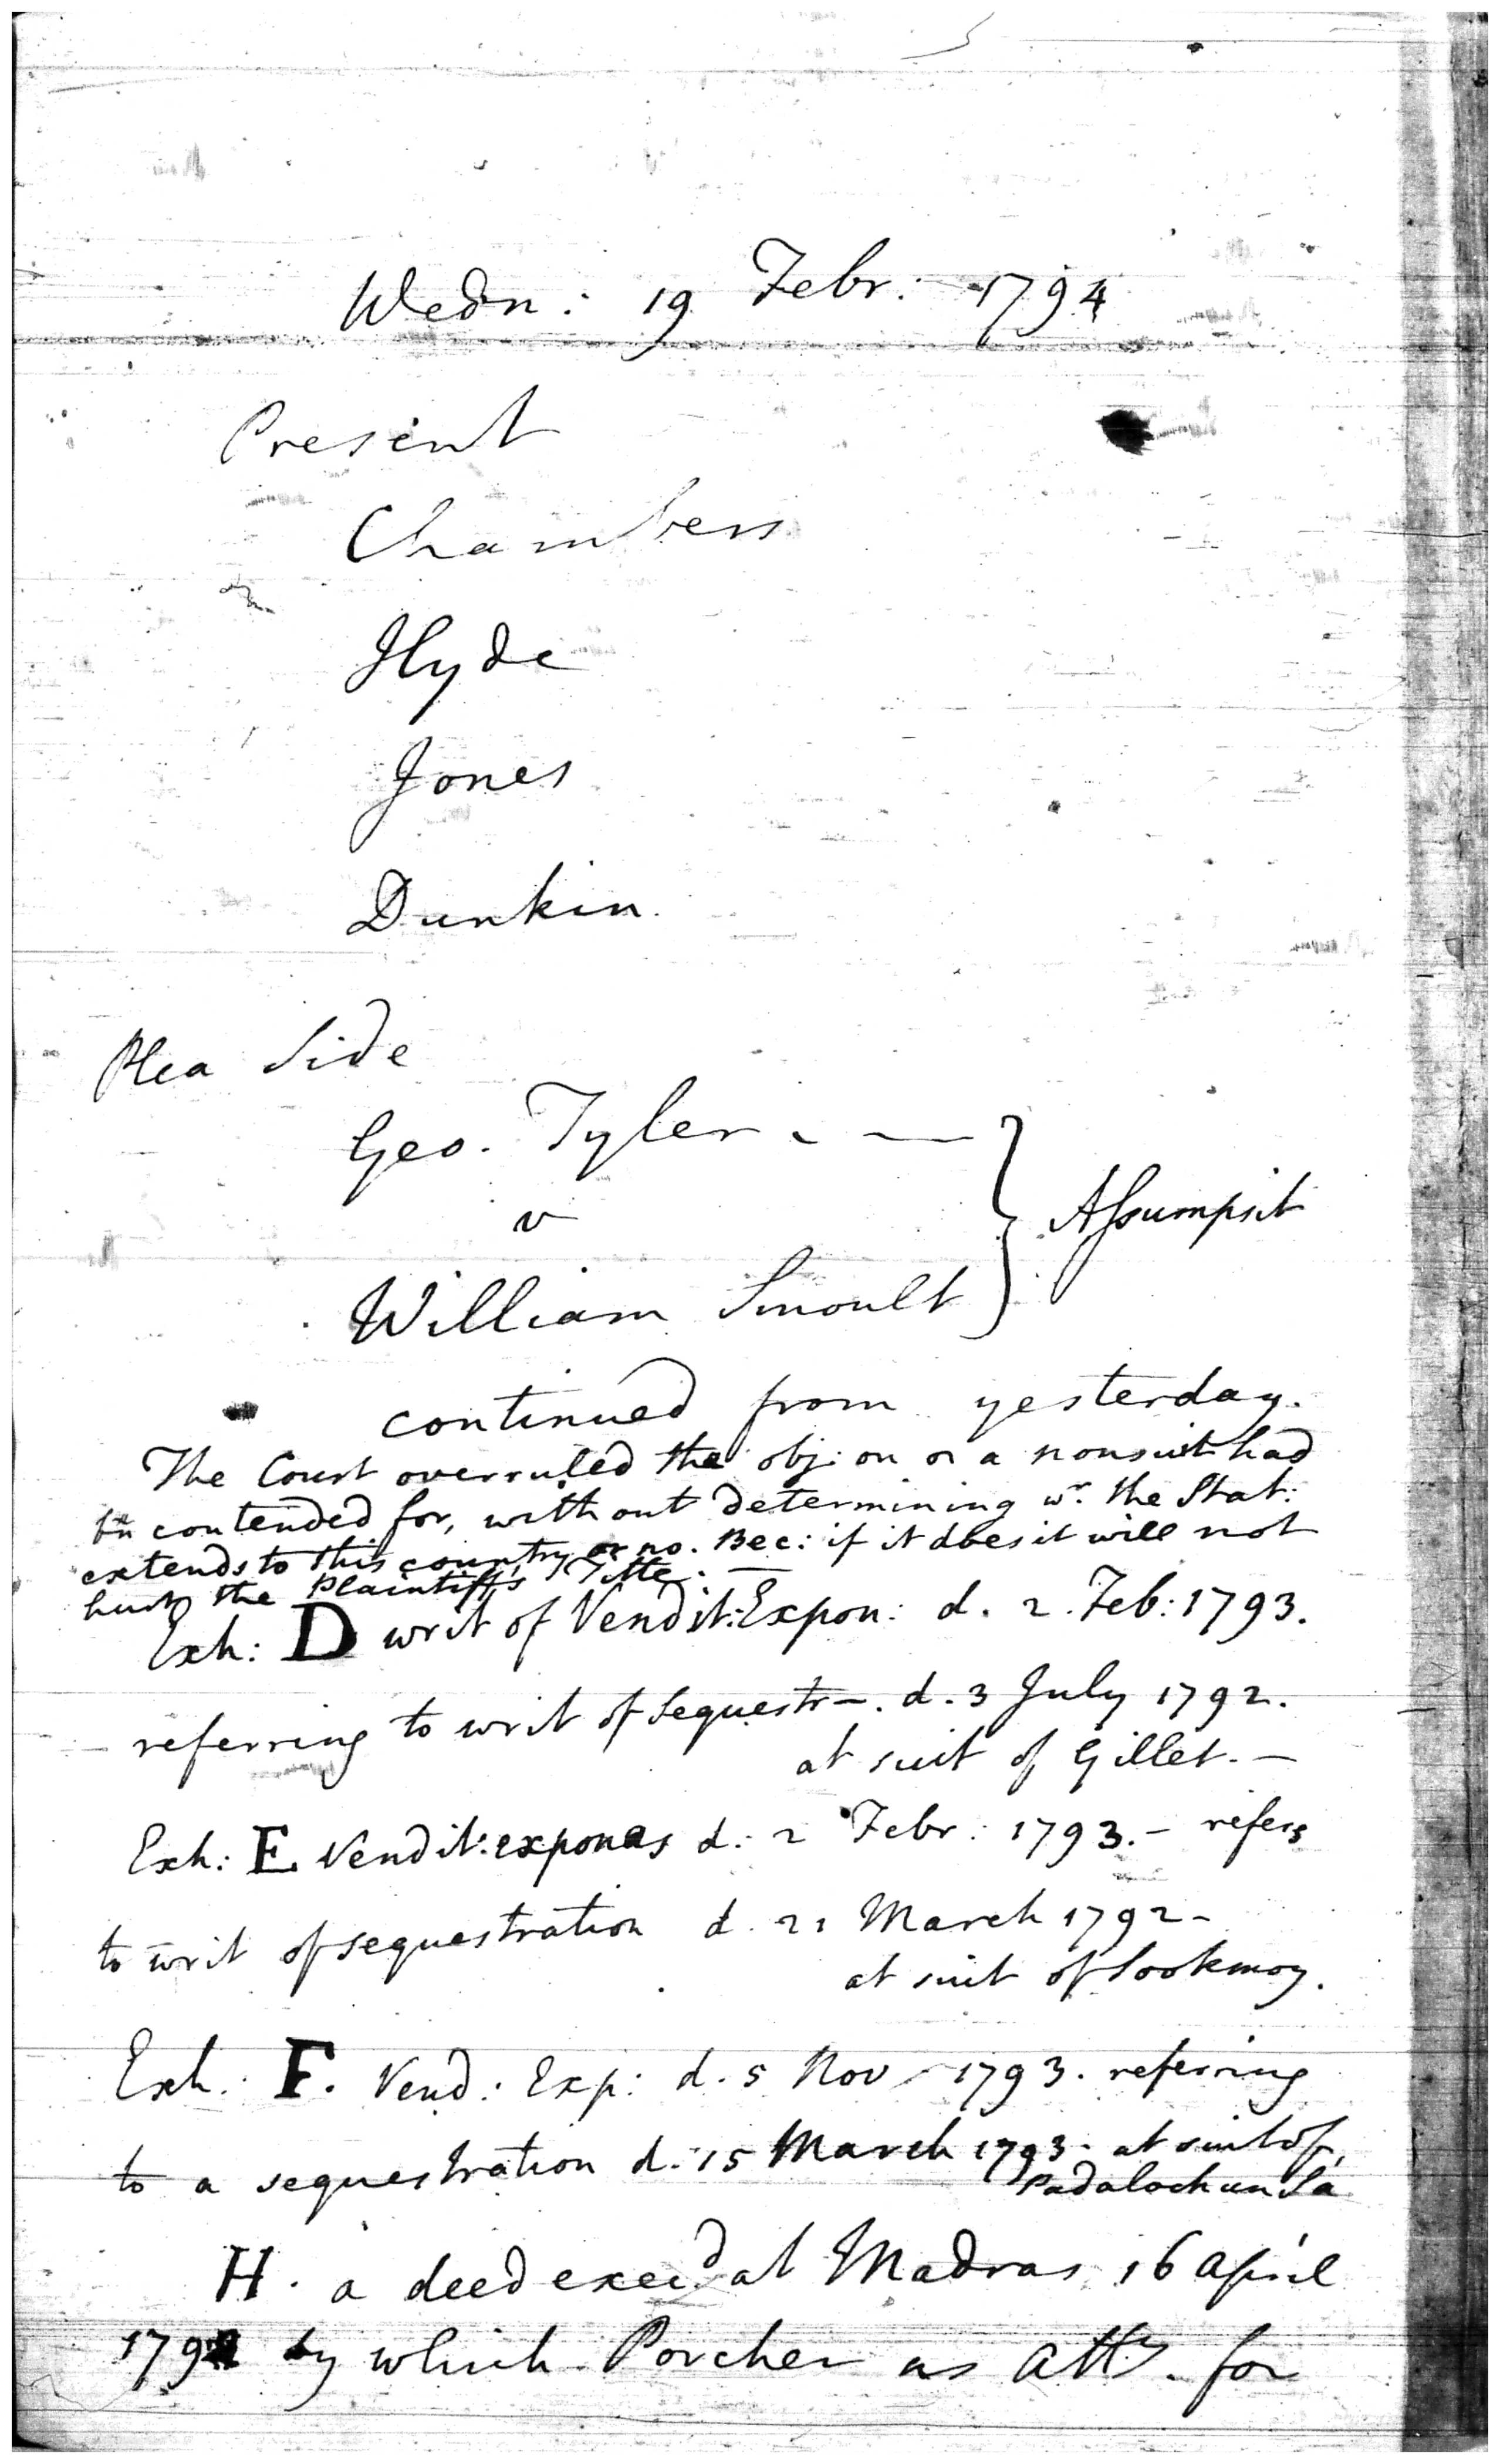 Wedn: 19 Febr: 1794
Present
Chambers
Hyde
Jones
Dunkin.
Plea Side
Geo. Tyler - —
v
Assumpsit
William Smoult
continued from yesterday.
The Court overruled the obj:on on a nonsuit had
bn contended for, without determining wr. the Stat:
extends to this country or no. Bec: if it does it will not
hurt the Plaintiff's Title. —
Exh: D writ of Vendit: Expon: d. 2. Feb: 1793.
referring to writ of Sequestr—. d. 3 July 1792.
at suit of Gillet. —
Exh: E Vendit: exponas d: 2 Febr: 1793. - refers
to writ of sequestration d. 21 March 1792 -
at suit of Sookmoy.
Exh: F. Vend: Exp: d. 5 Nov 1793. referring
to a sequestration d: 15 March 1793. at suit of
H. a deed exec:d at Madras 16 april
by which Porcher as Atty. for